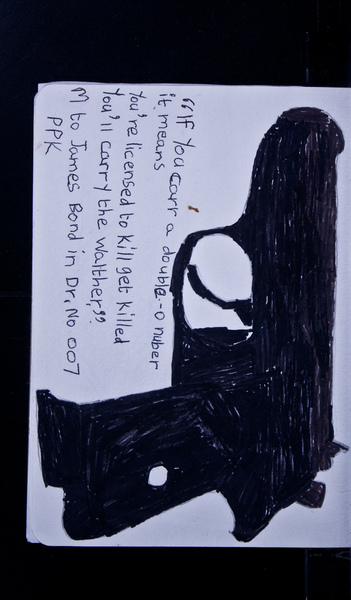 "If You carr a double-o nuber
it means
You're licensed to kill get killed
You'll carry the Walther,"
M to James Bond in Dr, No 007
PPK